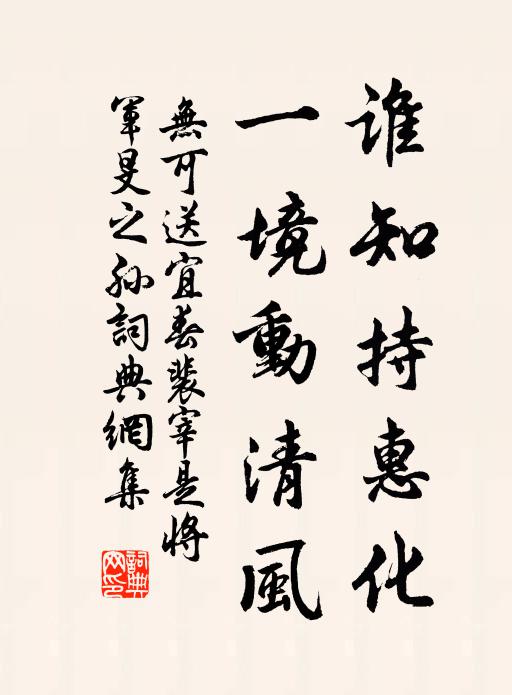 誰知持惠化
一境動清風
無可送宜春裴宰是將
軍旻之孫詞典網集
詞典
网印